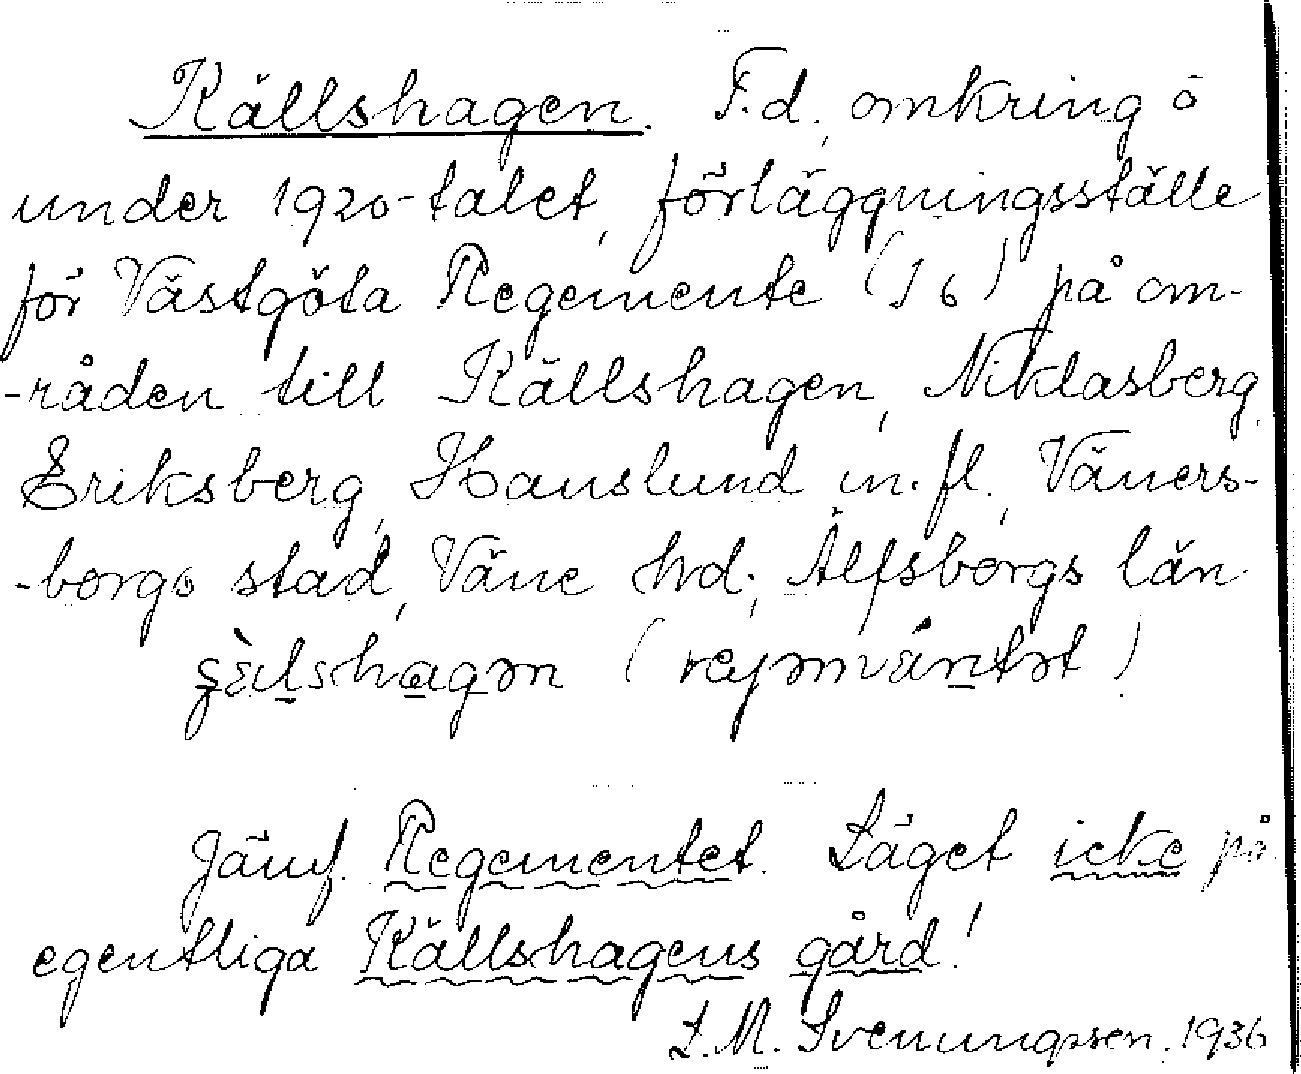 Källshagen. F.d., omkring o
under 1920-talet, förläggningsställe
för Västgöta Regemente (I 6) på om-
-råden till Källshagen, Niklasberg,
Eriksberg, Hanslund m.fl., Väners-
-borgs stad, Väne hd., Älfsborgs län.
Jämf. Regementet. Läget icke på
egentliga Källshagens gård!
L.M. Svenungsson. 1936